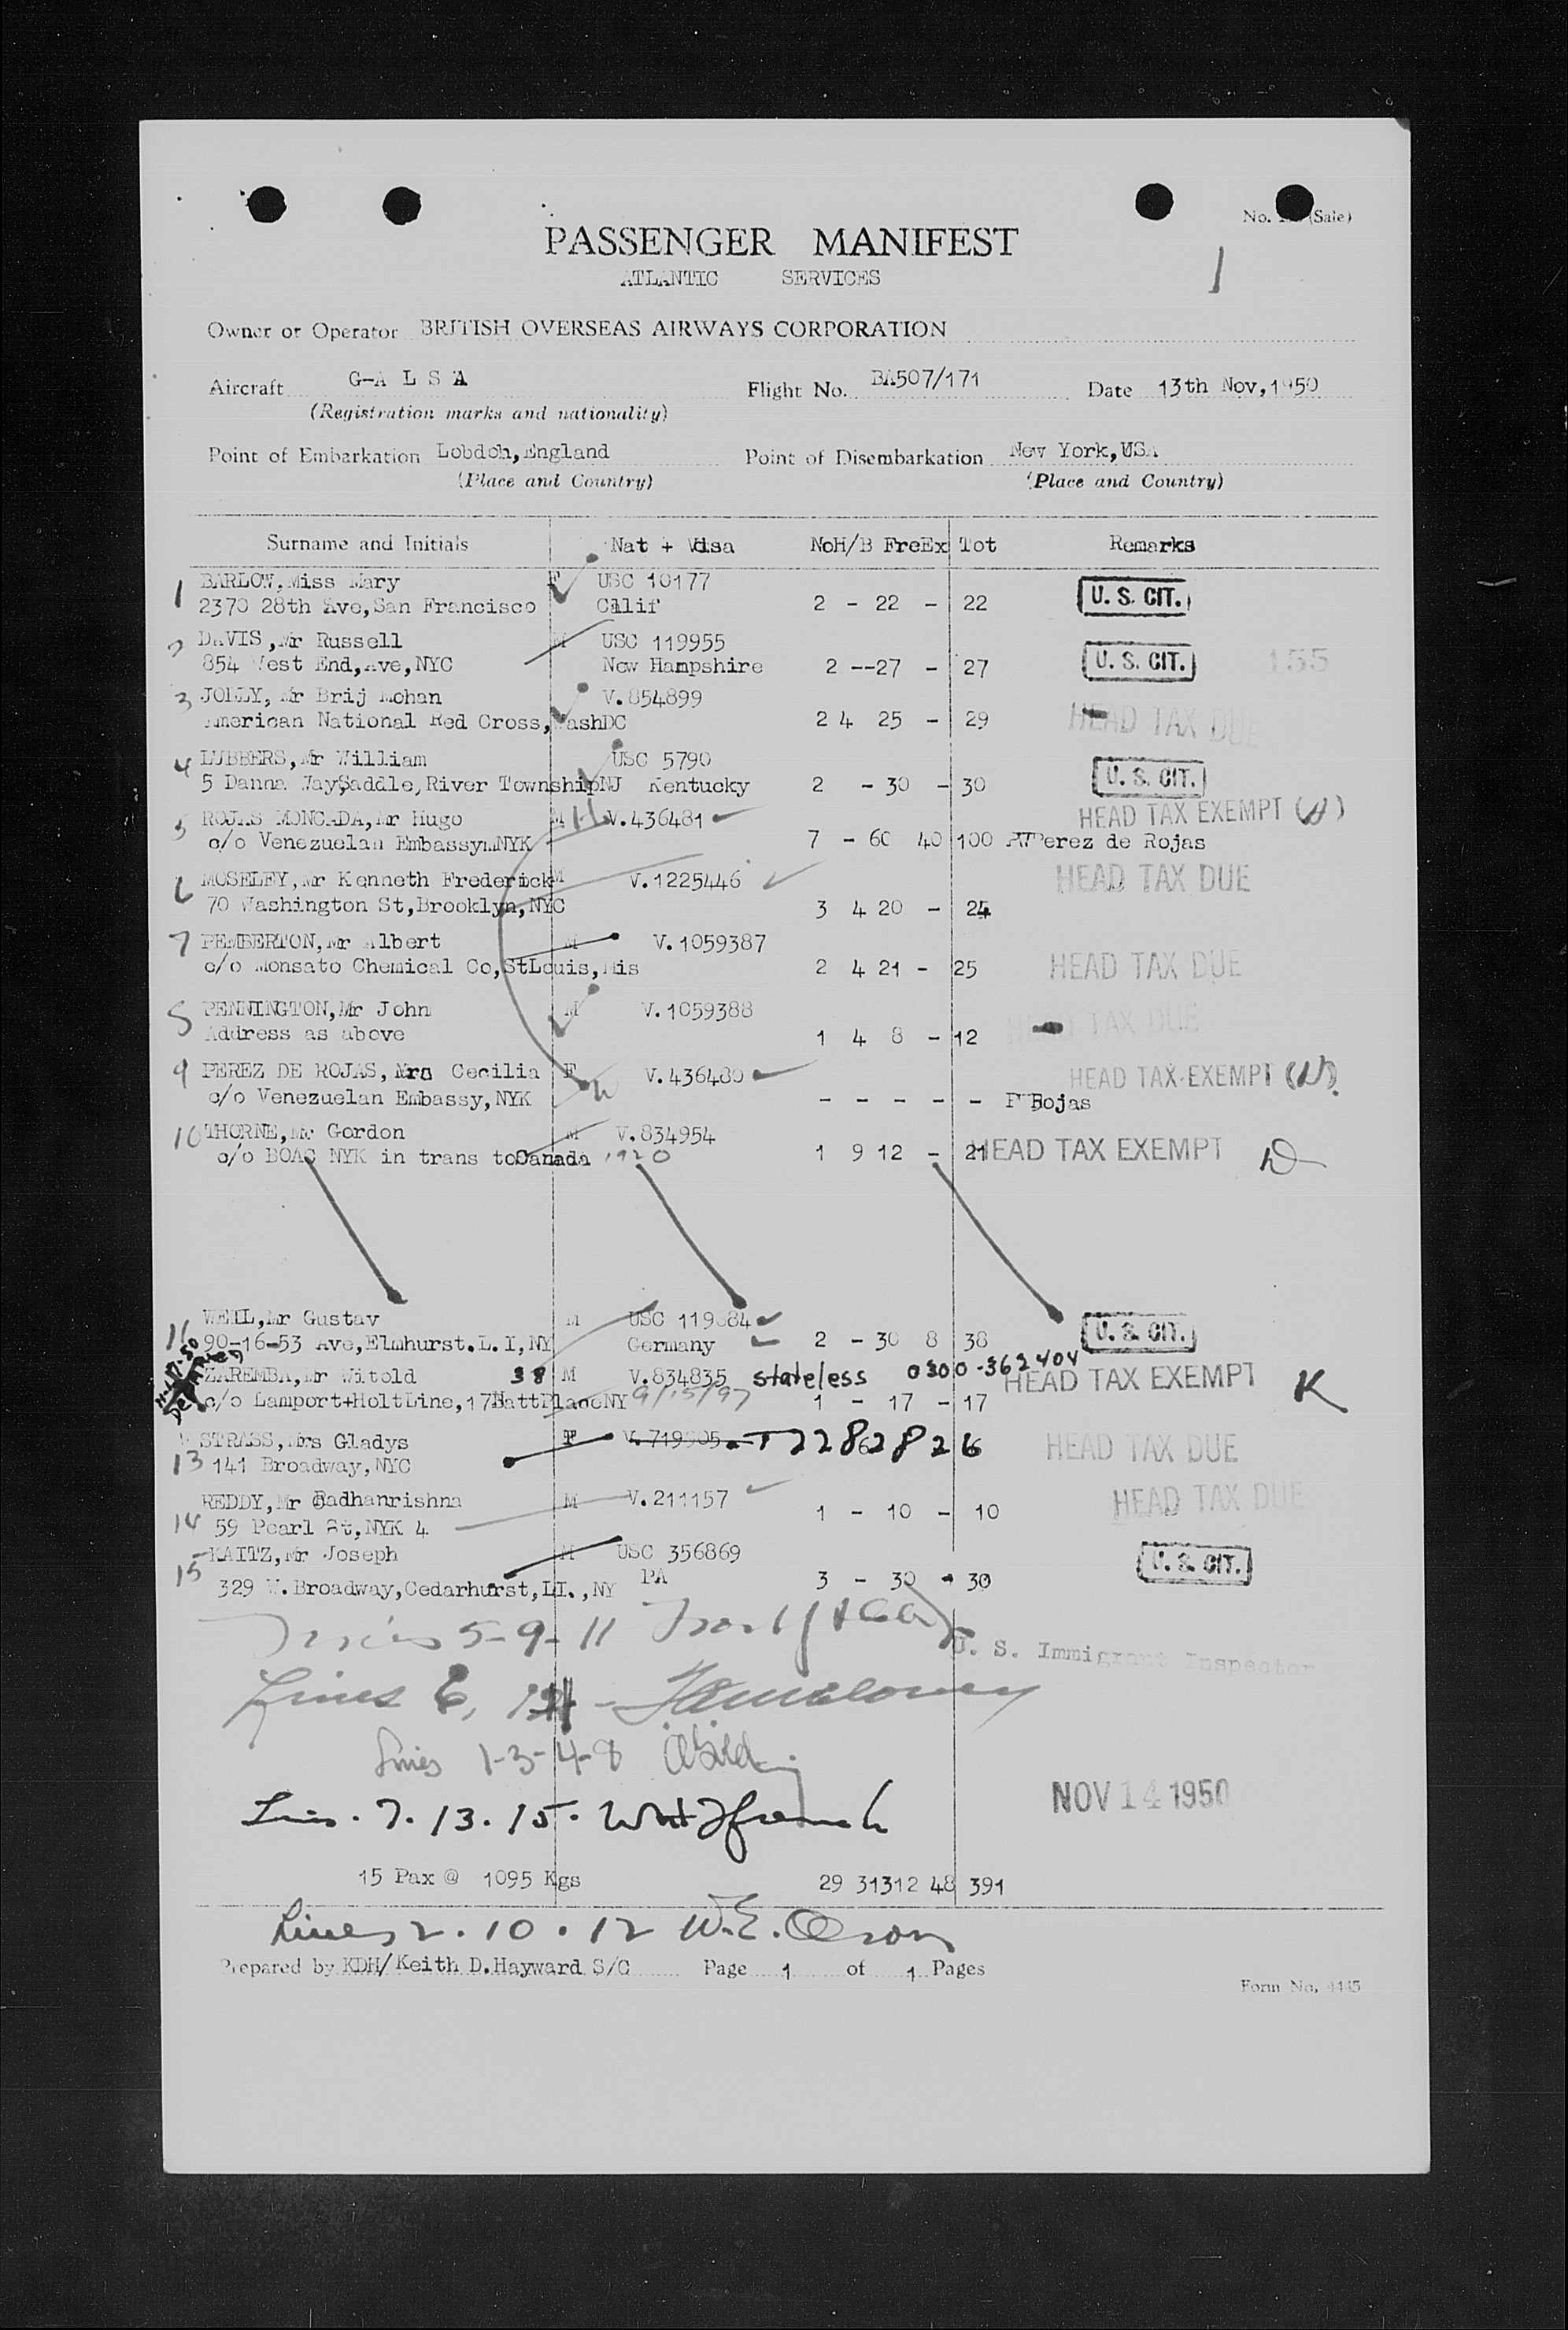 No. (Sale)
PASSENGER MANIFEST
1
ATLANTIC SERVICES
Owner or Operator BRITISH OVERSEAS AIRWAYS CORPORATION
Aircraft G-A L S A Flight No. BA507/171 Date 13th Nov,1950
(Registration marks and nationality)
Point of Embarkation Lobdoh,England Point of Disembarkation New York,USA
(Place and Country) (Place and Country)
Surname and Initials Nat + Visa NoH/B FreEx Tot Remarks
1 BARLOW,Miss Mary F USC 10177
2370 28th Ave,San Francisco Calif 2 - 22 - 22 U. S. CIT.
2 DAVIS,Mr Russell M USC 119955
854 West End,Ave,NYC New Hampshire 2 --27 - 27 U. S. CIT. 155
3 JOLLY,Mr Brij Mohan V.854899
American National Red Cross,WashDC 2 4 25 - 29 HEAD TAX DUE
4 LUBBERS,Mr William USC 5790
5 Danna Way,Saddle,River TownshipNJ Kentucky 2 - 30 - 30 U. S. CIT.
5 ROJAS MONCADA,Mr Hugo M V.436481 HEAD TAX EXEMPT
c/o Venezuelan EmbassymNYK 7 - 60 40 100 Perez de Rojas
6 MOSELEY,Mr Kenneth Frederick M V.1225446 HEAD TAX DUE
70 Washington St,Brooklyn,NYC 3 4 20 - 24
7 PEMBERTON,Mr Albert M V.1059387
c/o Monsato Chemical Co,StLouis,Mis 2 4 21 - 25 HEAD TAX DUE
8 PENNINGTON,Mr John M V.1059388
Address as above 1 4 8 - 12 HEAD TAX DUE
9 PEREZ DE ROJAS,Mrs Cecilia F V.436480 HEAD TAX EXEMPT
c/o Venezuelan Embassy,NYK - - - - - Rojas
10 THORNE,Mr Gordon M V.834954
c/o BOAC NYK in trans toCanada 1920 1 9 12 - 21 HEAD TAX EXEMPT
11 WEIL,Mr Gustav M USC 119684
90-16-53 Ave,Elmhurst.L.I,NY Germany 2 - 30 8 38 U. S. CIT.
ZAREMBA,Mr Witold 38 M V.834835 stateless 0300-362404 HEAD TAX EXEMPT K
c/o Lamport+HoltLine,17BattPlaceNY 9/15/97 1 - 17 - 17
STRASS,Mrs Gladys F V.719905 HEAD TAX DUE
13 141 Broadway,NYC
REDDY,Mr Radhanrishna M V.211157 HEAD TAX DUE
14 59 Pearl St,NYK 4 1 - 10 - 10
15 KAITZ,Mr Joseph M USC 356869 U. S. CIT.
329 W.Broadway,Cedarhurst,LI.,NY PA 3 - 30 - 30
Lines 5-9-11
U. S. Immigrant Inspector
Lines 6, 14
Lines 1-3-4-8
NOV 14 1950
Lines. 7. 13. 15.
15 Pax @ 1095 Kgs 29 31312 48 391
Lines 2.10.12 W.E. Olson
Prepared by KDH/Keith D.Hayward S/C Page 1 of 1 Pages
Form No. 4445